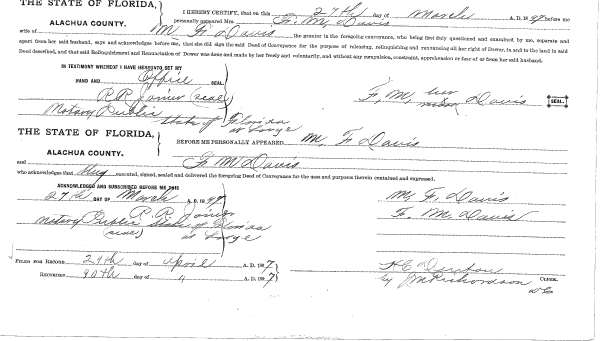 THE STATE OF FLORIDA,
ALACHUA COUNTY.
I HEREBY CERTIFY, that on this 27th day of March A. D. 1897 before me
personally appeared Mrs. F. M. Davis
wife of M. F. Davis the grantor in the foregoing conveyance, who being first duly questioned and examined by me, separate and
apart from her said husband, says and acknowledges before me, that she did sign the said Deed of Conveyance for the purpose of releasing, relinquishing and renouncing all her right of Dower, in and to the land in said
Deed described, and that said Relinquishment and Renunciation of Dower was done and made by her freely and voluntarily, and without any compulsion, constraint, apprehension or fear of or from her said husband.
IN TESTIMONY WHEREOF I HAVE HEREUNTO SET MY
HAND AND Office SEAL.
R. R. Joiner (seal)
Notary Public State of Florida
at Large
F. M. her mark Davis SEAL.
THE STATE OF FLORIDA,
ALACHUA COUNTY.
BEFORE ME PERSONALLY APPEARED M. F. Davis
and F M Davis
who acknowledges that they executed, signed, sealed and delivered the foregoing Deed of Conveyance for the uses and purposes therein contained and expressed.
ACKNOWLEDGED AND SUBSCRIBED BEFORE ME THIS
27th DAY OF March A. D. 1897
R. R. Joiner
Notary Public State of Florida
(seal) at Large
M, F, Davis
F. M. Davis
FILED FOR RECORD 29th day of April A. D. 1897
RECORDED 30th day of " A. D. 1897
H C Denton CLERK.
by J M Richardson DC